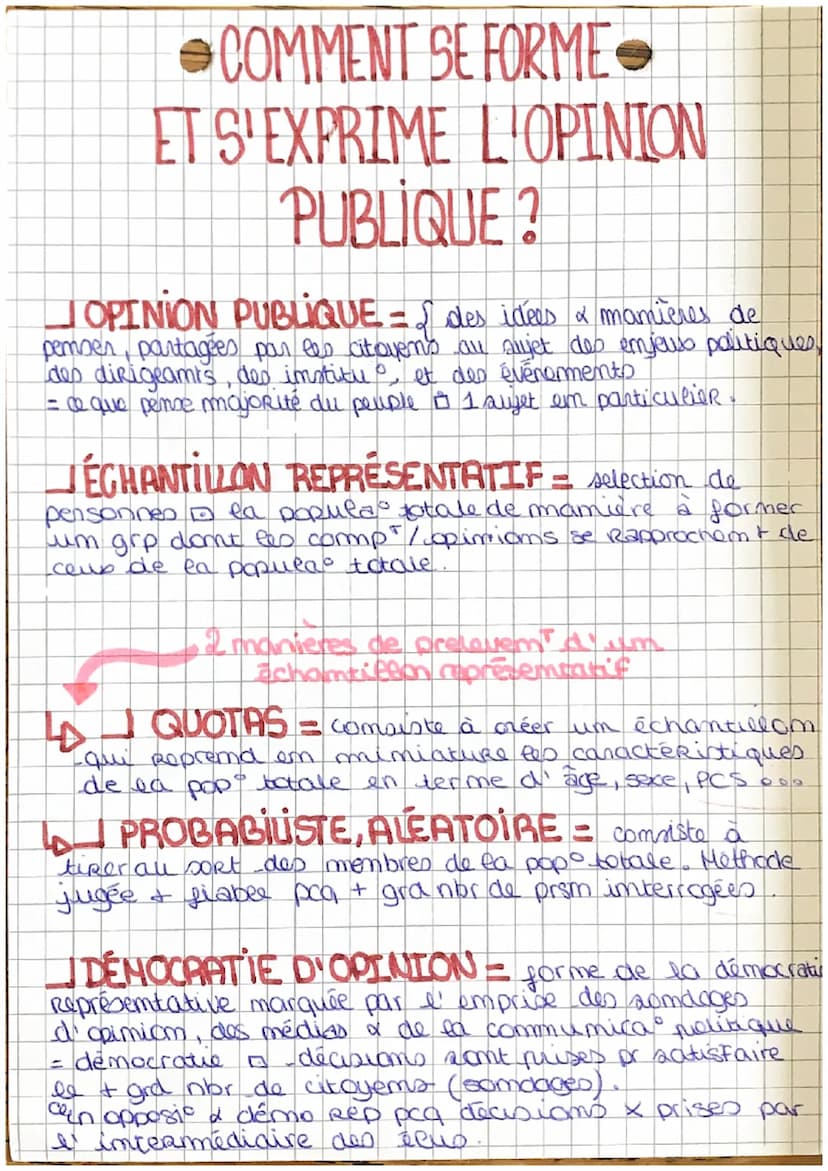 COMMENT SE FORME
ET S'EXPRIME L'OPINION
PUBLIQUE ?
OPINION PUBLIQUE = ∫ des idées & manières de
penser, partagées par les citoyens au sujet des enjeux politiques,
des dirigeants, des institu°, et des évènements
= ce que pense majorité du peuple 1 sujet en particulier.
ÉCHANTILLON REPRÉSENTATIF = selection de
personnes la popula° totale de manière à former
un grp dont les compᵀ/opinions se rapprochent de
ceux de la popula° totale.
2 manières de prelevemᵀ d'un
échantillon représentatif
QUOTAS = consiste à créer un échantillon
qui reprend en miniature les caractéristiques
de la pop° totale en terme d'âge, sexe, PCS ...
PROBABILISTE, ALÉATOIRE = consiste à
tirer au sort des membres de la pop° totale. Méthode
jugée + fiable pcq + grd nbr de prsn interrogées.
DÉMOCRATIE D'OPINION = forme de la démocrati
représentative marquée par l'emprise des sondages
d'opinion, des médias & de la communica° politique
= démocratie décisions sont prises pr satisfaire
le + grd nbr de citoyens (sondages).
en opposi° démo rep pcq décisions × prises par
l'intermédiaire des élus.